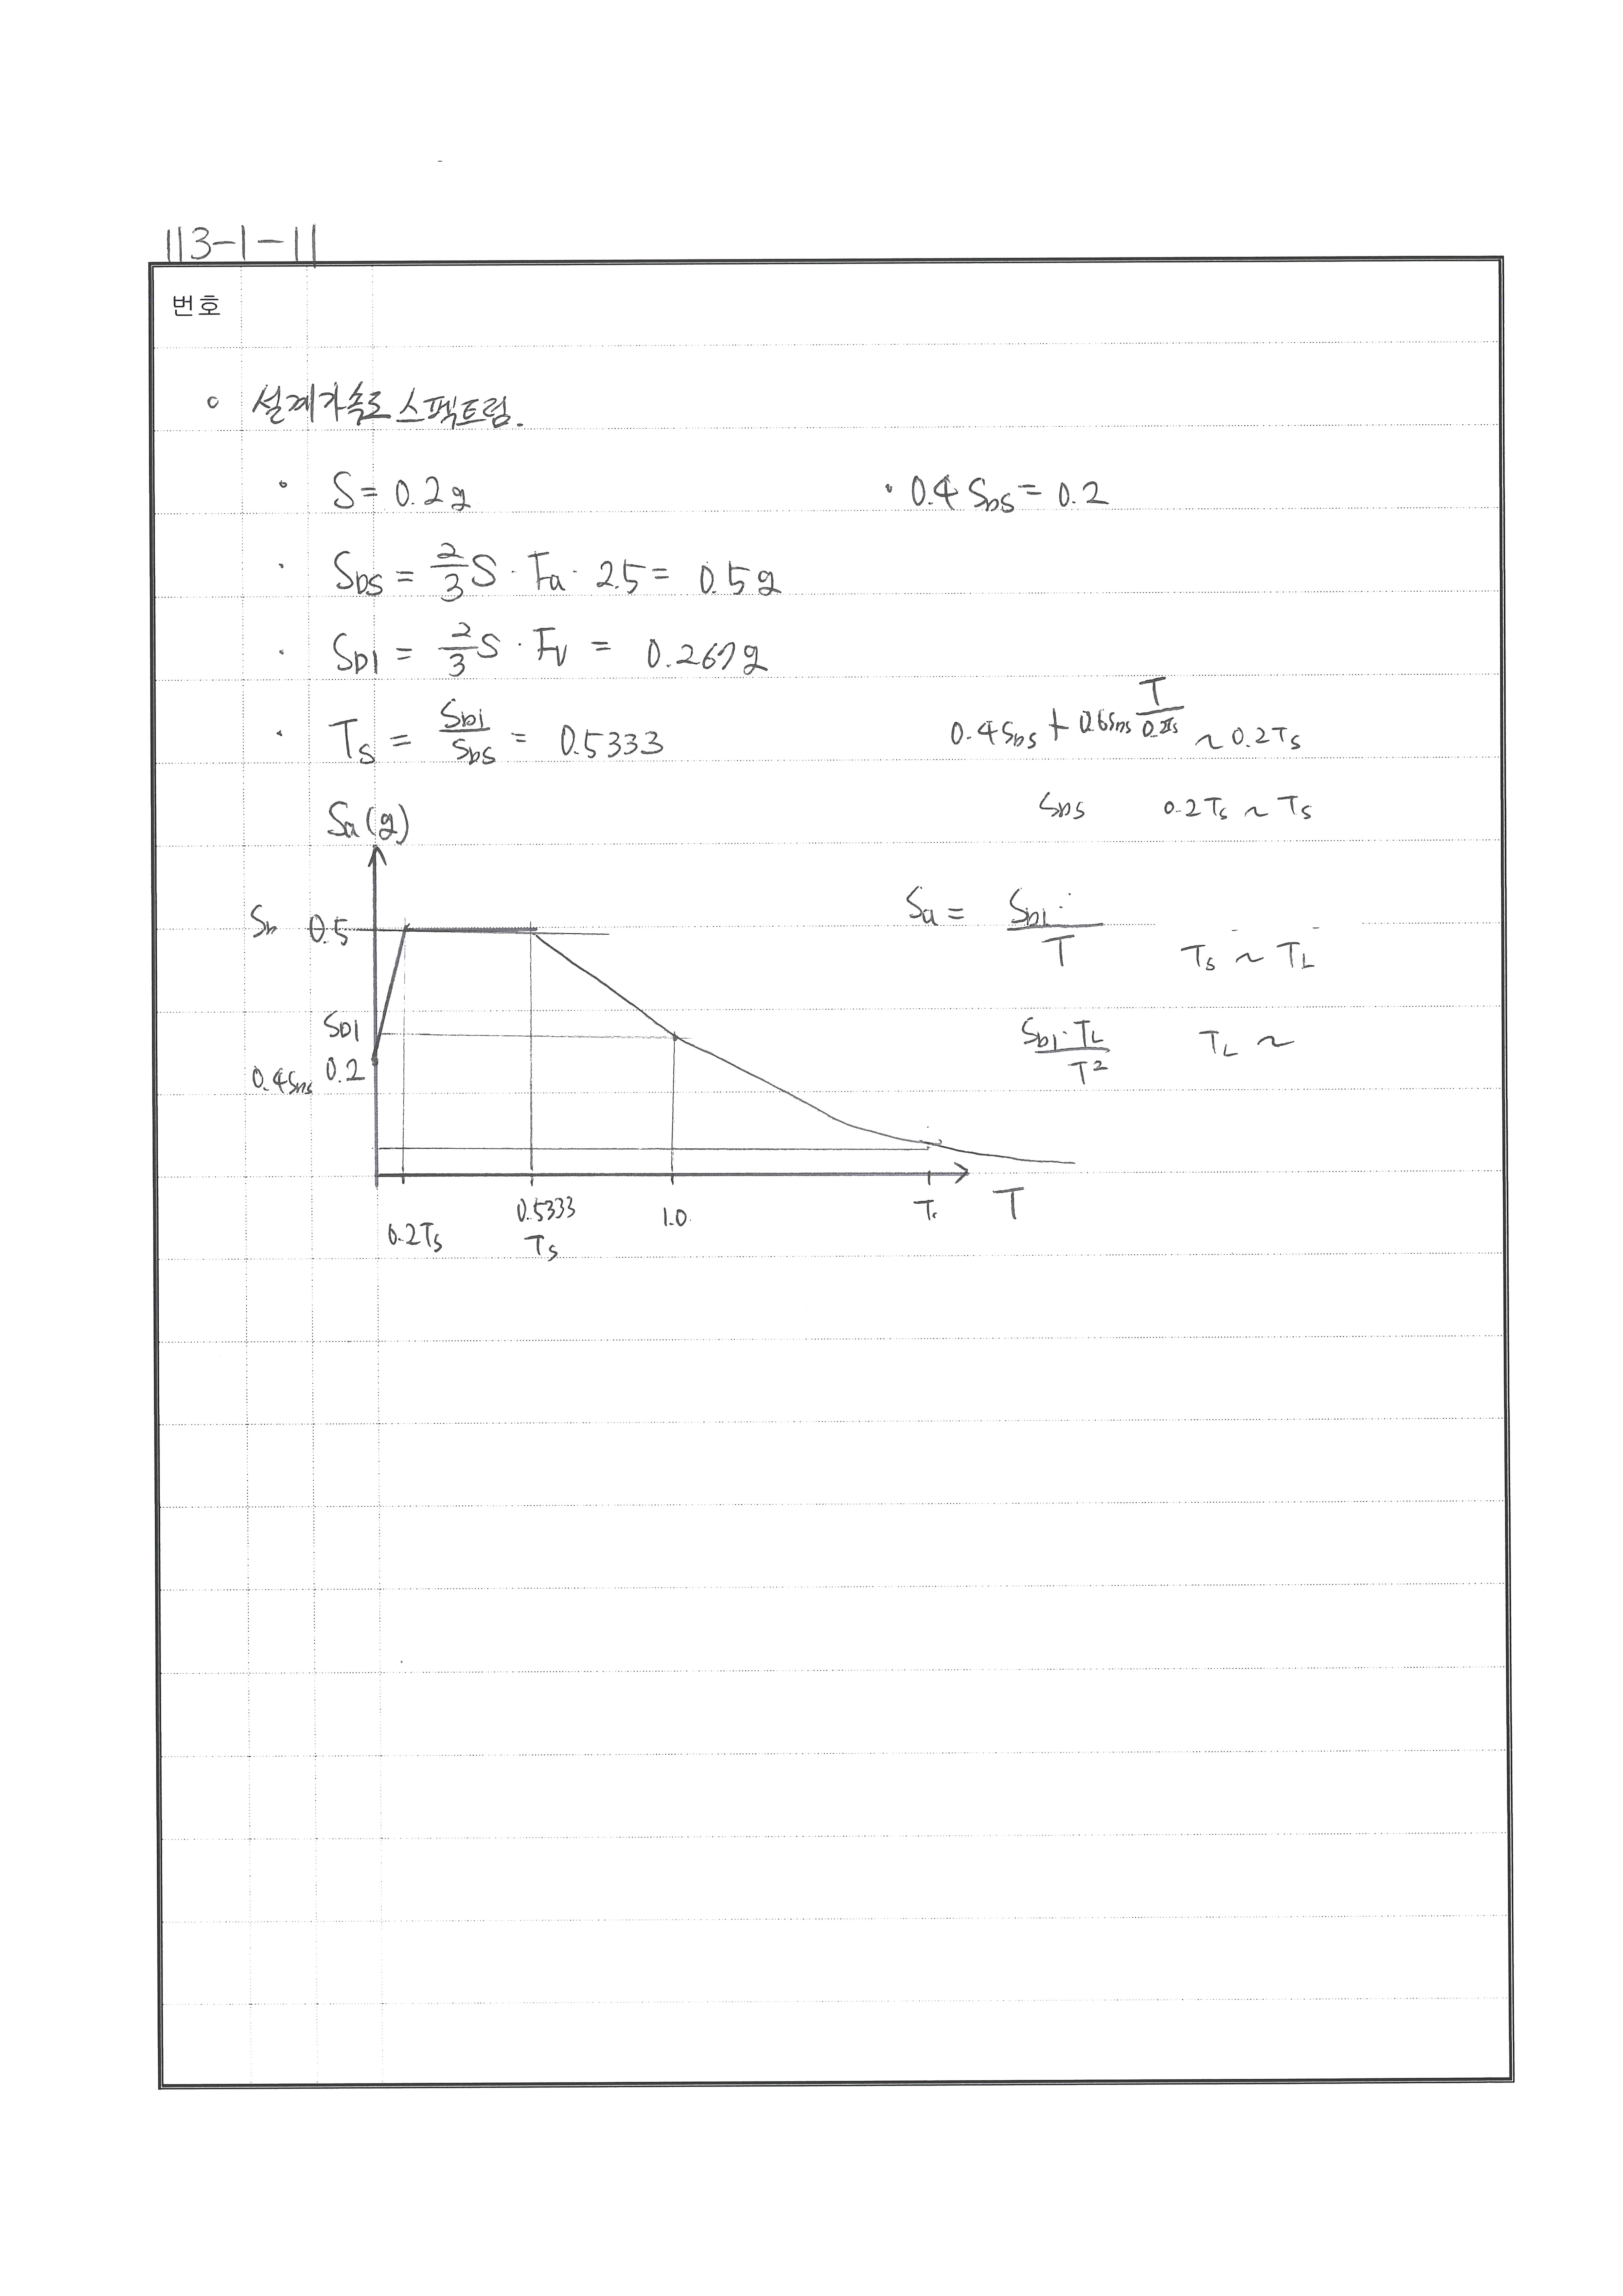 113-1-11
번호
◦ 설계가속도 스펙트럼.
· S = 0.2g
· 0.4 S_DS = 0.2
· S_DS = 2/3 S · Fa · 2.5 = 0.5g
· S_D1 = 2/3 S · Fv = 0.267g
· T_S = S_D1/S_DS = 0.5333
0.4S_DS + 0.6S_DS T/0.2T_S ~ 0.2T_S
S_DS 0.2T_S ~ T_S
Sa(g)
Sa = S_D1/T T_S ~ T_L
0.5
S_D1
S_D1·T_L/T² T_L ~
0.4S_DS 0.2
0.2T_S
0.5333
T_S
1.0
T